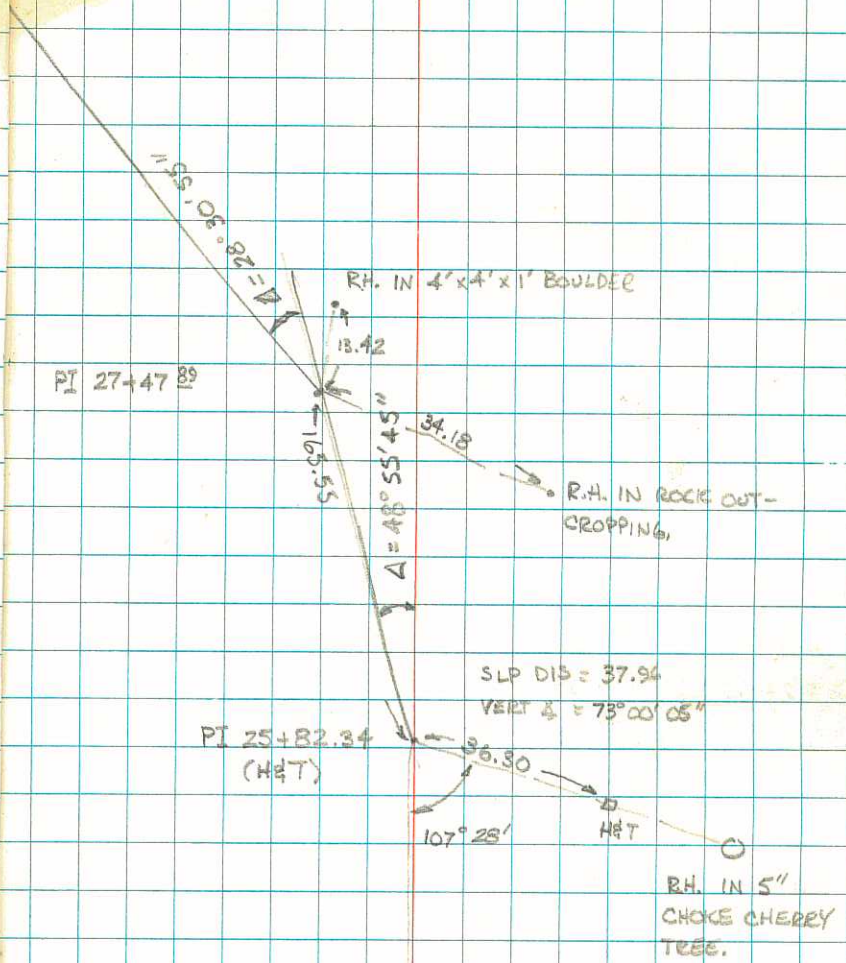 Δ = 28° 30' 55"
R.H. IN 4'x4'x1' BOULDER
13.42
PI 27+47 89
34.18
165.55
Δ = 48° 55' 45"
R.H. IN ROCK OUT-
CROPPING.
SLP DIS = 37.96
VERT ∡ = 73° 00' 05"
PI 25+82.34
(H&T)
36.30
107° 28'
H&T
R.H. IN 5"
CHOKE CHERRY
TREE.